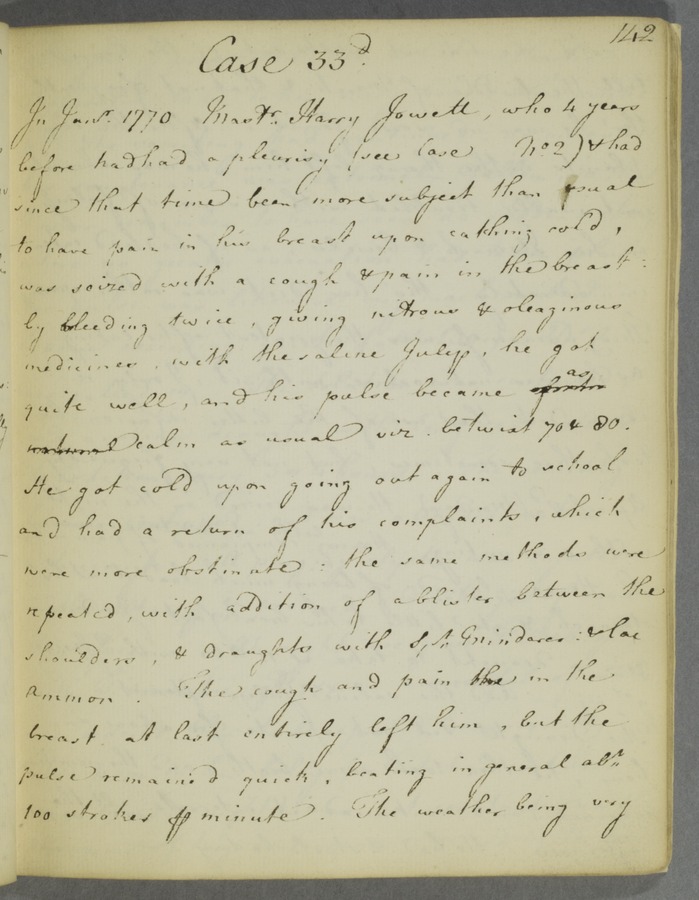 142
Case 33d.
In Janry. 1770 Mastr. Harry Jowett, who 4 years
before had had a pleurisy (see Case No 2) & had
since that time been more subject than usual
to have pain in his breast upon catching cold,
was seized with a cough & pain in the breast:
by bleeding twice, giving nitrous & oleaginous
medicines, with the saline Julep, he got
quite well, and his pulse became as
calm as usual viz. betwixt 70 & 80.
He got cold upon going out again to school
and had a return of his complaints, which
were more obstinate: the same methods were
repeated, with addition of a blister between the
shoulders, & draughts with Sp. Minderer: & lac
ammon. The cough and pain the in the
breast at last entirely left him, but the
pulse remained quick, beating in general abt.
100 strokes p minute. The weather being very